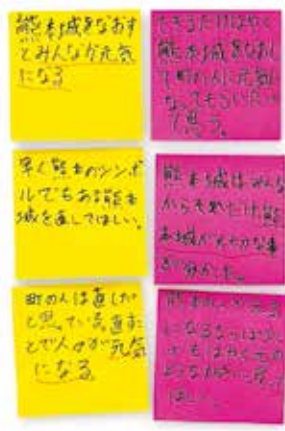 熊本城をなおす
とみんなが元気
になる
できるだけはやく
熊本城をなおし
て町の人に元気に
なってもらいたい
と思う。
早く熊本のシンボ
ルでもある熊本
城を直してほしい。
熊本城はみんな
からそれだけ熊
本城が大切な事
が分かった。
町の人は直した
と思っている。直すこ
とで人々が元気
になる
になるなら
もはやく元の
ほしい。